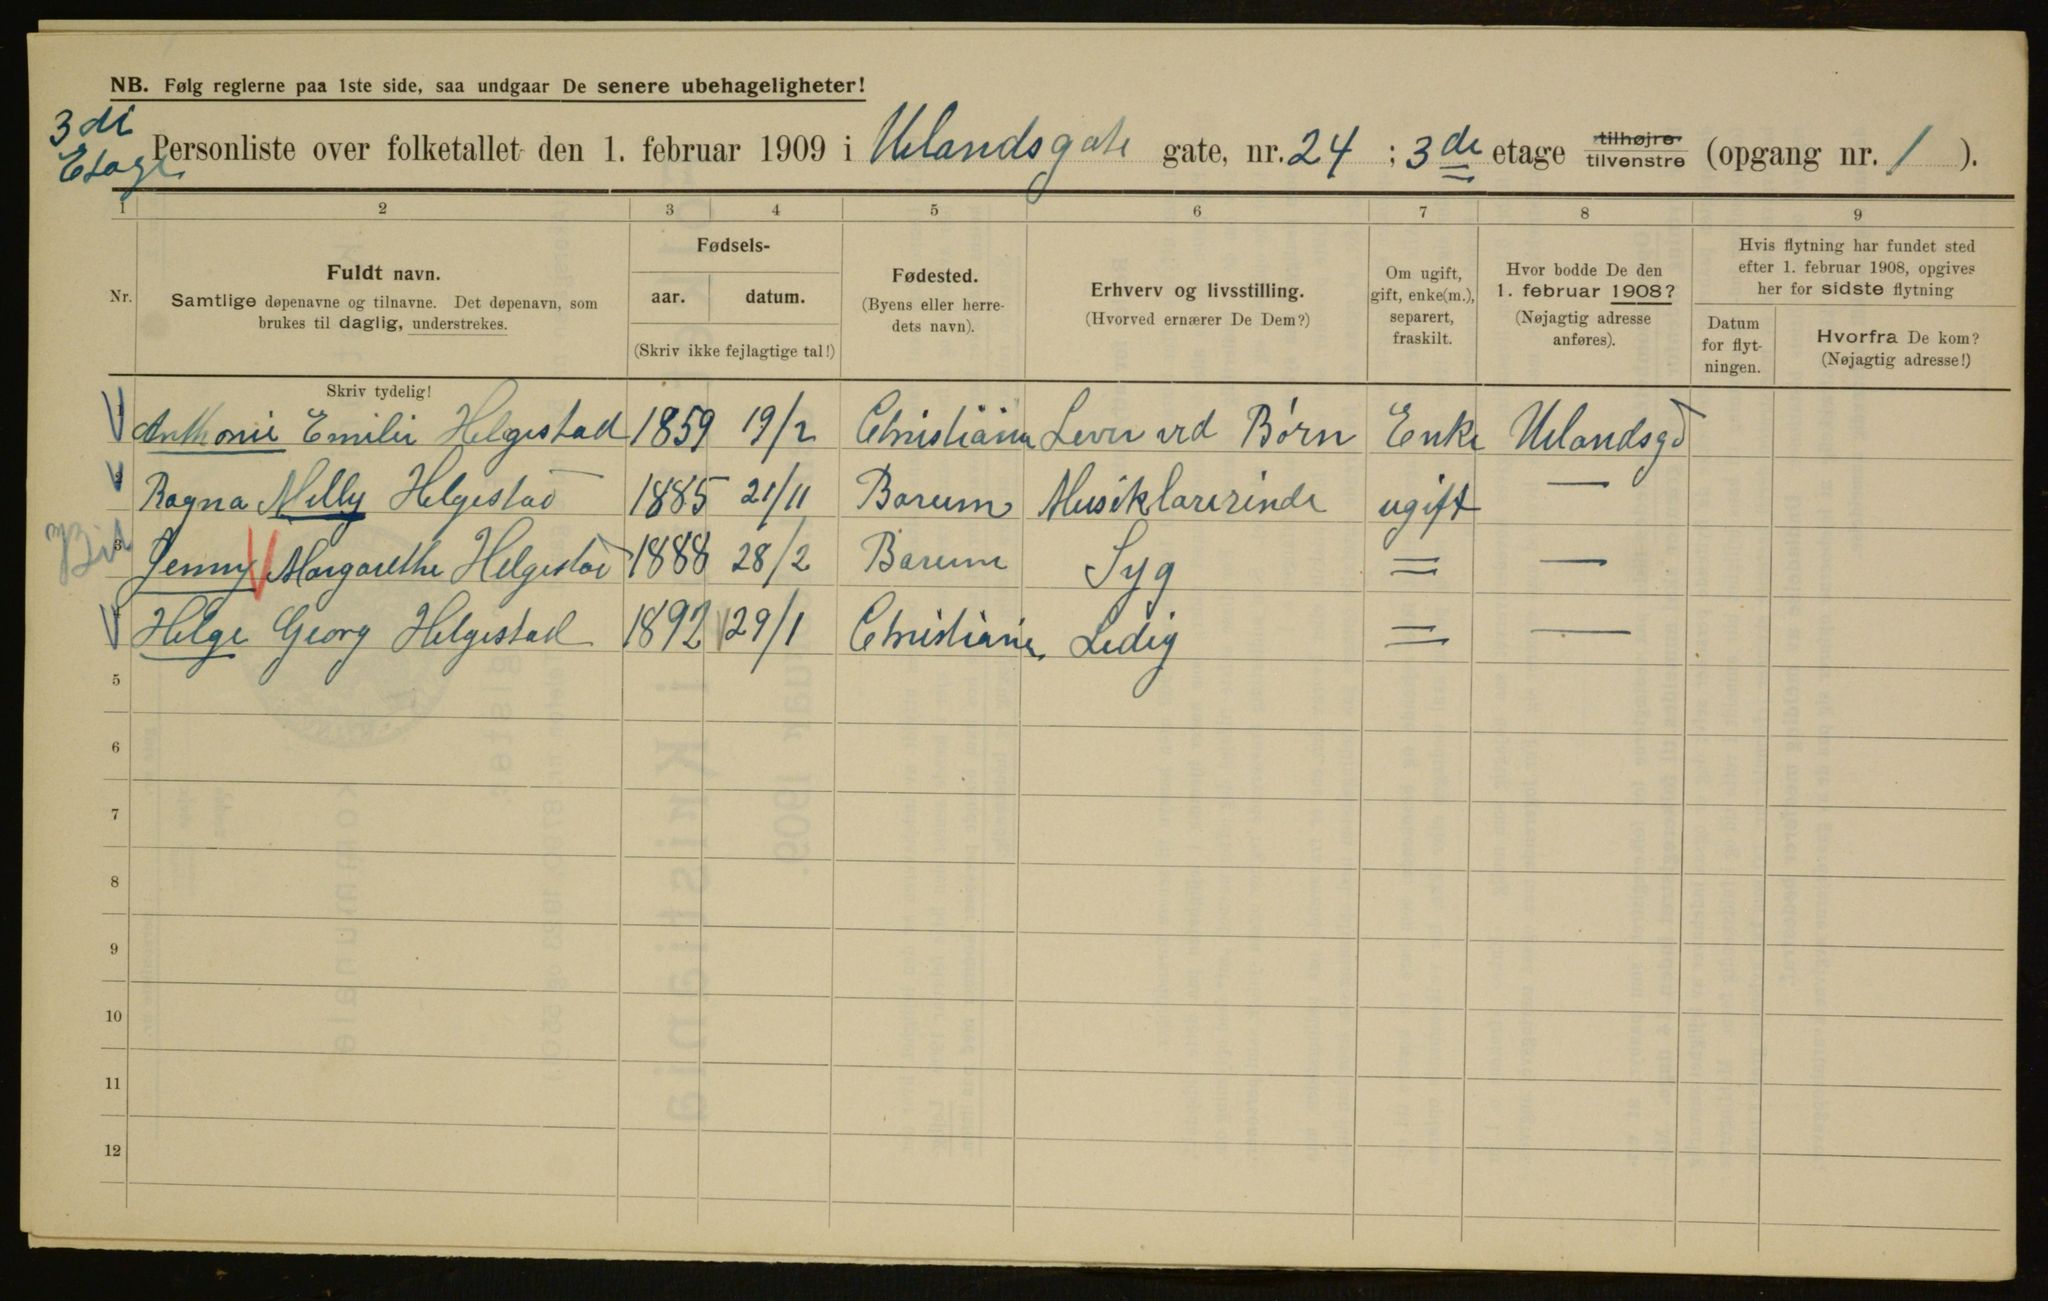 NB. Følg reglerne paa 1ste side, saa undgaar De senere ubehageligheter!
3de
Etage
Personliste over folketallet den 1. februar 1909 i Uelandsgate gate, nr. 24 ; 3de etage tilhøjre tilvenstre (opgang nr. 1 ).
1 2 3 4 5 6 7 8 9
Nr.
Fuldt navn.
Samtlige døpenavne og tilnavne. Det døpenavn, som
brukes til daglig, understrekes.
Skriv tydelig!
Fødsels-
aar. datum.
(Skriv ikke fejlagtige tal!)
Fødested.
(Byens eller herre-
dets navn).
Erhverv og livsstilling.
(Hvorved ernærer De Dem?)
Om ugift,
gift, enke(m.),
separert,
fraskilt.
Hvor bodde De den
1. februar 1908?
(Nøjagtig adresse
anføres).
Hvis flytning har fundet sted
efter 1. februar 1908, opgives
her for sidste flytning
Datum
for flyt-
ningen.
Hvorfra De kom?
(Nøjagtig adresse!)
1 Anthonie Emilie Helgestad 1859 19/2 Christiania Lever ved Børn Enke Uelandsgd
2 Ragna Melly Helgestad 1885 21/11 Barum Musiklærerinde ugift —
3 Jenny Margarethe Helgestad 1888 28/2 Barum Syg = —
Helge Georg Helgestad 1892 29/1 Christiania Ledig = —
5
6
7
8
9
10
11
12